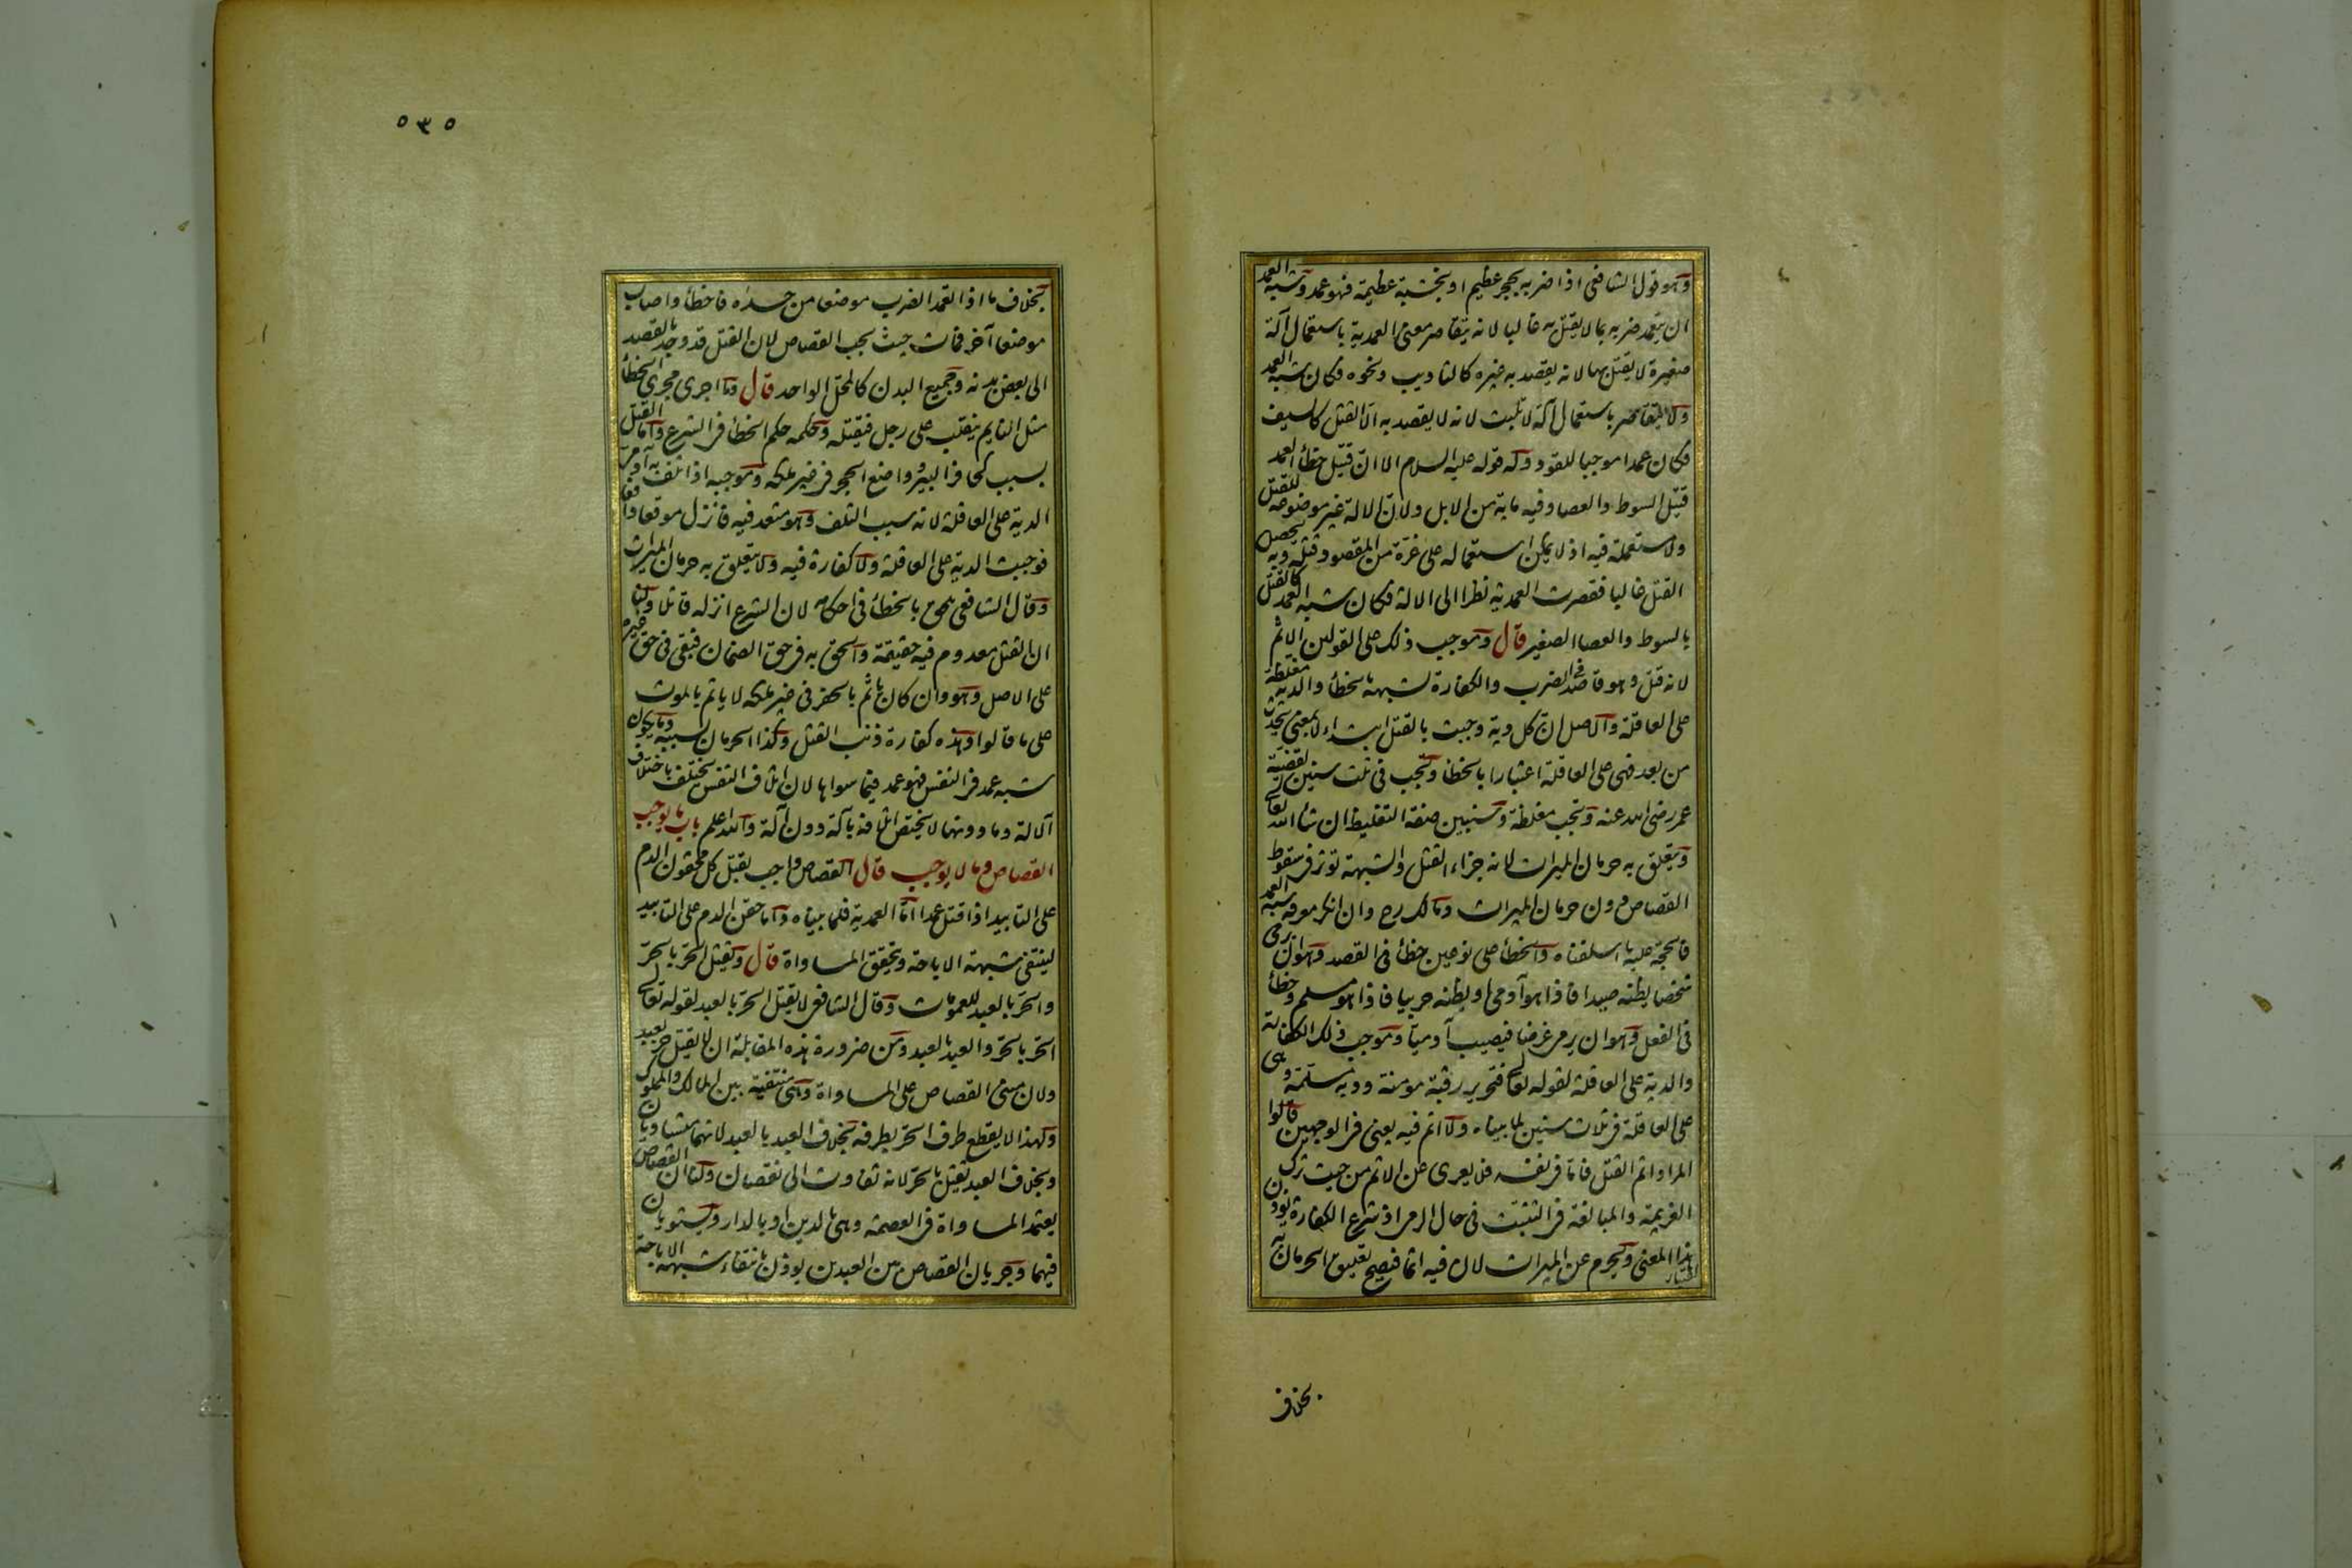 وهو قول الشافعي اذا ضربه بحجر عظيم او بخشبة عظيمة فهو عمد وشبه العمد
ان يتعمد ضربه بما لا يقتل به غالبا لانه يتقاصر معنى العمدية باستعمال آلة
صغيرة لا يقتل بها لانه يقصد به غيره كالتاديب ونحوه فكان شبه العمد
ولا يتقاصر باستعمال آلة لا تلبث لانه لا يقصد به الا القتل كالسيف
فكان عمدا موجبا للقود وله قوله عليه السلام الا ان قتيل خطأ العمد
قتيل السوط والعصا وفيه مايه من الابل ولان الالة غير موضوعة للقتل
ولا مستعملة فيه اذ لا يمكن استعماله على غرة من المقصود قتله وبه يحصل
القتل غالبا فقصرت العمدية نظرا الى الالة فكان شبه العمد كالقتل
بالسوط والعصا الصغير قال وموجب ذلك على القولين الاثم
لانه قتل وهو قاصد في الضرب والكفارة لشبهه بالخطأ والدية مغلظة
على العاقلة والاصل ان كل دية وجبت بالقتل ابتداء لا بمعنى يحدث
من بعد فهي على العاقلة اعتبارا بالخطأ وتجب في ثلث سنين لقضية
عمر رضى الله عنه وتجب مغلظة وسنبين صفة التغليظ ان شاء الله تعالى
ويتعلق به حرمان الميراث لانه جزاء القتل والشبهة توثر في سقوط
القصاص دون حرمان الميراث ومالك رح وان انكر معرفة شبه العمد
فالحجة عليه ما اسلفناه والخطأ على نوعين خطأ في القصد وهو ان يرمى
شخصا يظنه صيدا فاذا هو آدمي او يظنه حربيا فاذا هو مسلم وخطأ
في الفعل وهو ان يرمى غرضا فيصيب آدميا وموجب ذلك الكفارة
والدية على العاقلة لقوله تعالى فتحرير رقبة مومنة ودية مسلمة وهى
على العاقلة في ثلاث سنين لما بيناه ولا اثم فيه يعنى في الوجهين قالوا
المراد اثم القتل فاما في نفسه فلا يعرى عن الاثم من حيث ترك
العزيمة والمبالغة في التثبت في حال الرمى اذ شرع الكفارة يوذن
باعتبار هذا المعنى ويحرم عن الميراث لان فيه اثما فيصح تعليق الحرمان به
بخلاف
٥٣٥
بخلاف ما اذا تعمد الضرب موضعا من جسده فاخطأ واصاب
موضعا آخر فمات حيث يجب القصاص لان القتل قد وجد بالقصد
الى بعض بدنه وجميع البدن كالمحل الواحد قال وما اجرى مجرى الخطأ
مثل النايم ينقلب على رجل فيقتله وحكمه حكم الخطأ في الشرع واما القتل
بسبب كحافر البير وواضع الحجر في غير ملكه وموجبه اذا تلف به آدمى
الدية على العاقلة لانه سبب التلف وهو متعد فيه فانزل موقعا دافعا
فوجبت الدية على العاقلة ولا كفارة فيه ولا يتعلق به حرمان الميراث
وقال الشافعي يلحق بالخطأ في احكامه لان الشرع انزله قاتلا ولنا
ان القتل معدوم فيه حقيقة والحق به في حق الضمان فبقى في حق غيره
على الاصل وهو وان كان ياثم بالحفر في غير ملكه لا ياثم بالموت
على ما قالوا وهذه كفارة ذنب القتل وكذا الحرمان بسببه وما يكون
شبه عمد في النفس فهو عمد فيما سواها لان اتلاف النفس يختلف باختلاف
الالة وما دونها لا يختص اتلافه بآلة دون آلة والله اعلم باب ما يوجب
القصاص وما لا يوجب قال القصاص واجب بقتل كل محقون الدم
على التابيد اذا قتل عمدا اما العمدية فلما بيناه واما حقن الدم على التابيد
لينتفى شبهة الاباحة ويتحقق المساواة قال ويقتل الحر بالحر
والحر بالعبد للعمومات وقال الشافعي لا يقتل الحر بالعبد لقوله تعالى
الحر بالحر والعبد بالعبد ومن ضرورة هذه المقابلة ان لا يقتل حر بعبد
ولان مبنى القصاص على المساواة وهى منتفية بين المالك والمملوك
ولهذا لا يقطع طرف الحر بطرفه بخلاف العبد بالعبد لانهما متساويان
وبخلاف العبد يقتل بالحر لانه تفاوت الى نقصان ولنا ان القصاص
يعتمد المساواة في العصمة وهى بالدين او بالدار ويستويان
فيهما وجريان القصاص بين العبدين يوذن بانتفاء شبهة الاباحة